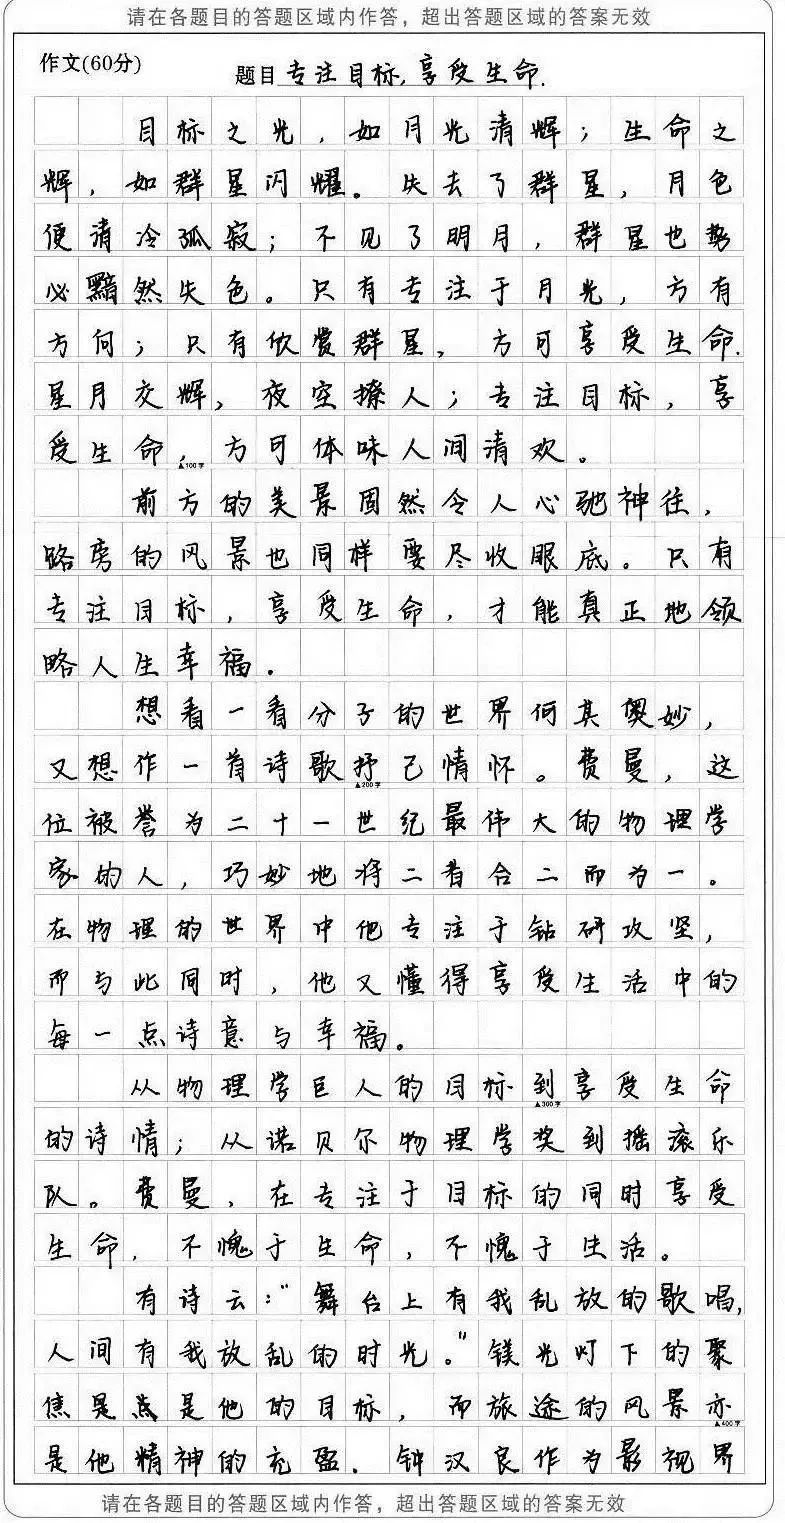 请在各题目的答题区域内作答，超出答题区域的答案无效
作文(60分)
题目 专注目标,享受生命.
目标之光，如月光清辉；生命之
辉，如群星闪耀。失去了群星，月色
便清冷孤寂；不见了明月，群星也势
必黯然失色。只有专注于月光，方有
方向；只有欣赏群星，方可享受生命.
星月交辉，夜空撩人；专注目标，享
受生命，方可体味人间清欢。
▲100字
前方的美景固然令人心驰神往，
路旁的风景也同样要尽收眼底。只有
专注目标，享受生命，才能真正地领
略人生幸福.
想看一看分子的世界何其奥妙，
又想作一首诗歌抒己情怀。费曼，这
▲200字
位被誉为二十一世纪最伟大的物理学
家的人，巧妙地将二者合二而为一。
在物理的世界中他专注于钻研攻坚，
而与此同时，他又懂得享受生活中的
每一点诗意与幸福。
从物理学巨人的目标到享受生命
▲300字
的诗情；从诺贝尔物理学奖到摇滚乐
队。费曼，在专注于目标的同时享受
生命，不愧于生命，不愧于生活。
有诗云："舞台上有我乱放的歌唱,
人间有我放乱的时光。"镁光灯下的聚
焦是是他的目标，而旅途的风景亦
▲400字
是他精神的充盈.钟汉良作为影视界
请在各题目的答题区域内作答，超出答题区域的答案无效